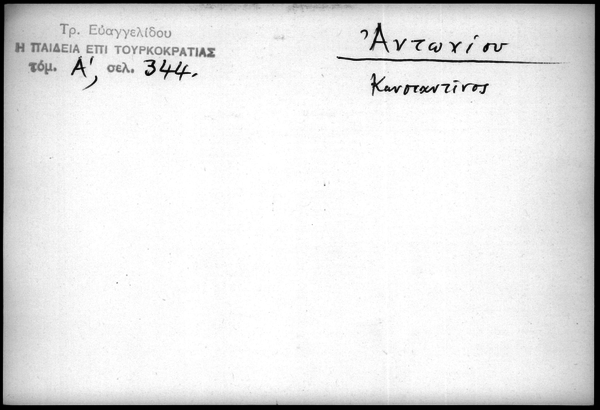 Τρ. Εὐαγγελίδου
Η ΠΑΙΔΕΙΑ ΕΠΙ ΤΟΥΡΚΟΚΡΑΤΙΑΣ
τόμ. Α', σελ. 344.
Ἀντωνίου
Κωνσταντῖνος